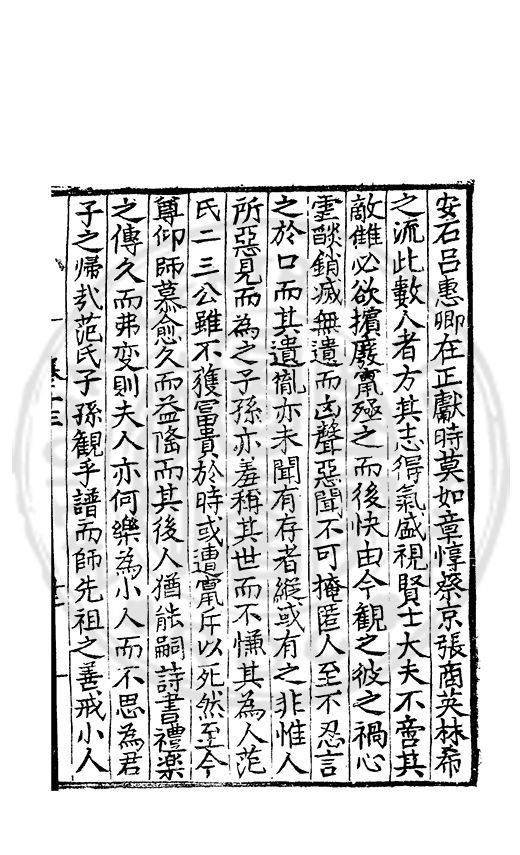 安石呂惠卿在正獻時莫如章惇蔡京張商英林希
之流此數人者方其志得氣盛視賢士大夫不啻其
敵讎必欲擯廢竄殛之而後快由今觀之彼之禍心
虐燄銷滅無遺而凶聲惡聞不可掩匿人至不忍言
之於口而其遺胤亦未聞有存者縱或有之非惟人
所惡見而為之子孫亦羞稱其世而不慊其為人范
氏二三公雖不獲冨貴於時或遭竄斥以死然至今
尊仰師慕愈久而益隆而其後人猶能嗣詩書禮樂
之傳久而弗变則夫人亦何樂為小人而不思為君
子之帰㢤范氏子孫觀乎譜而師先祖之善戒小人